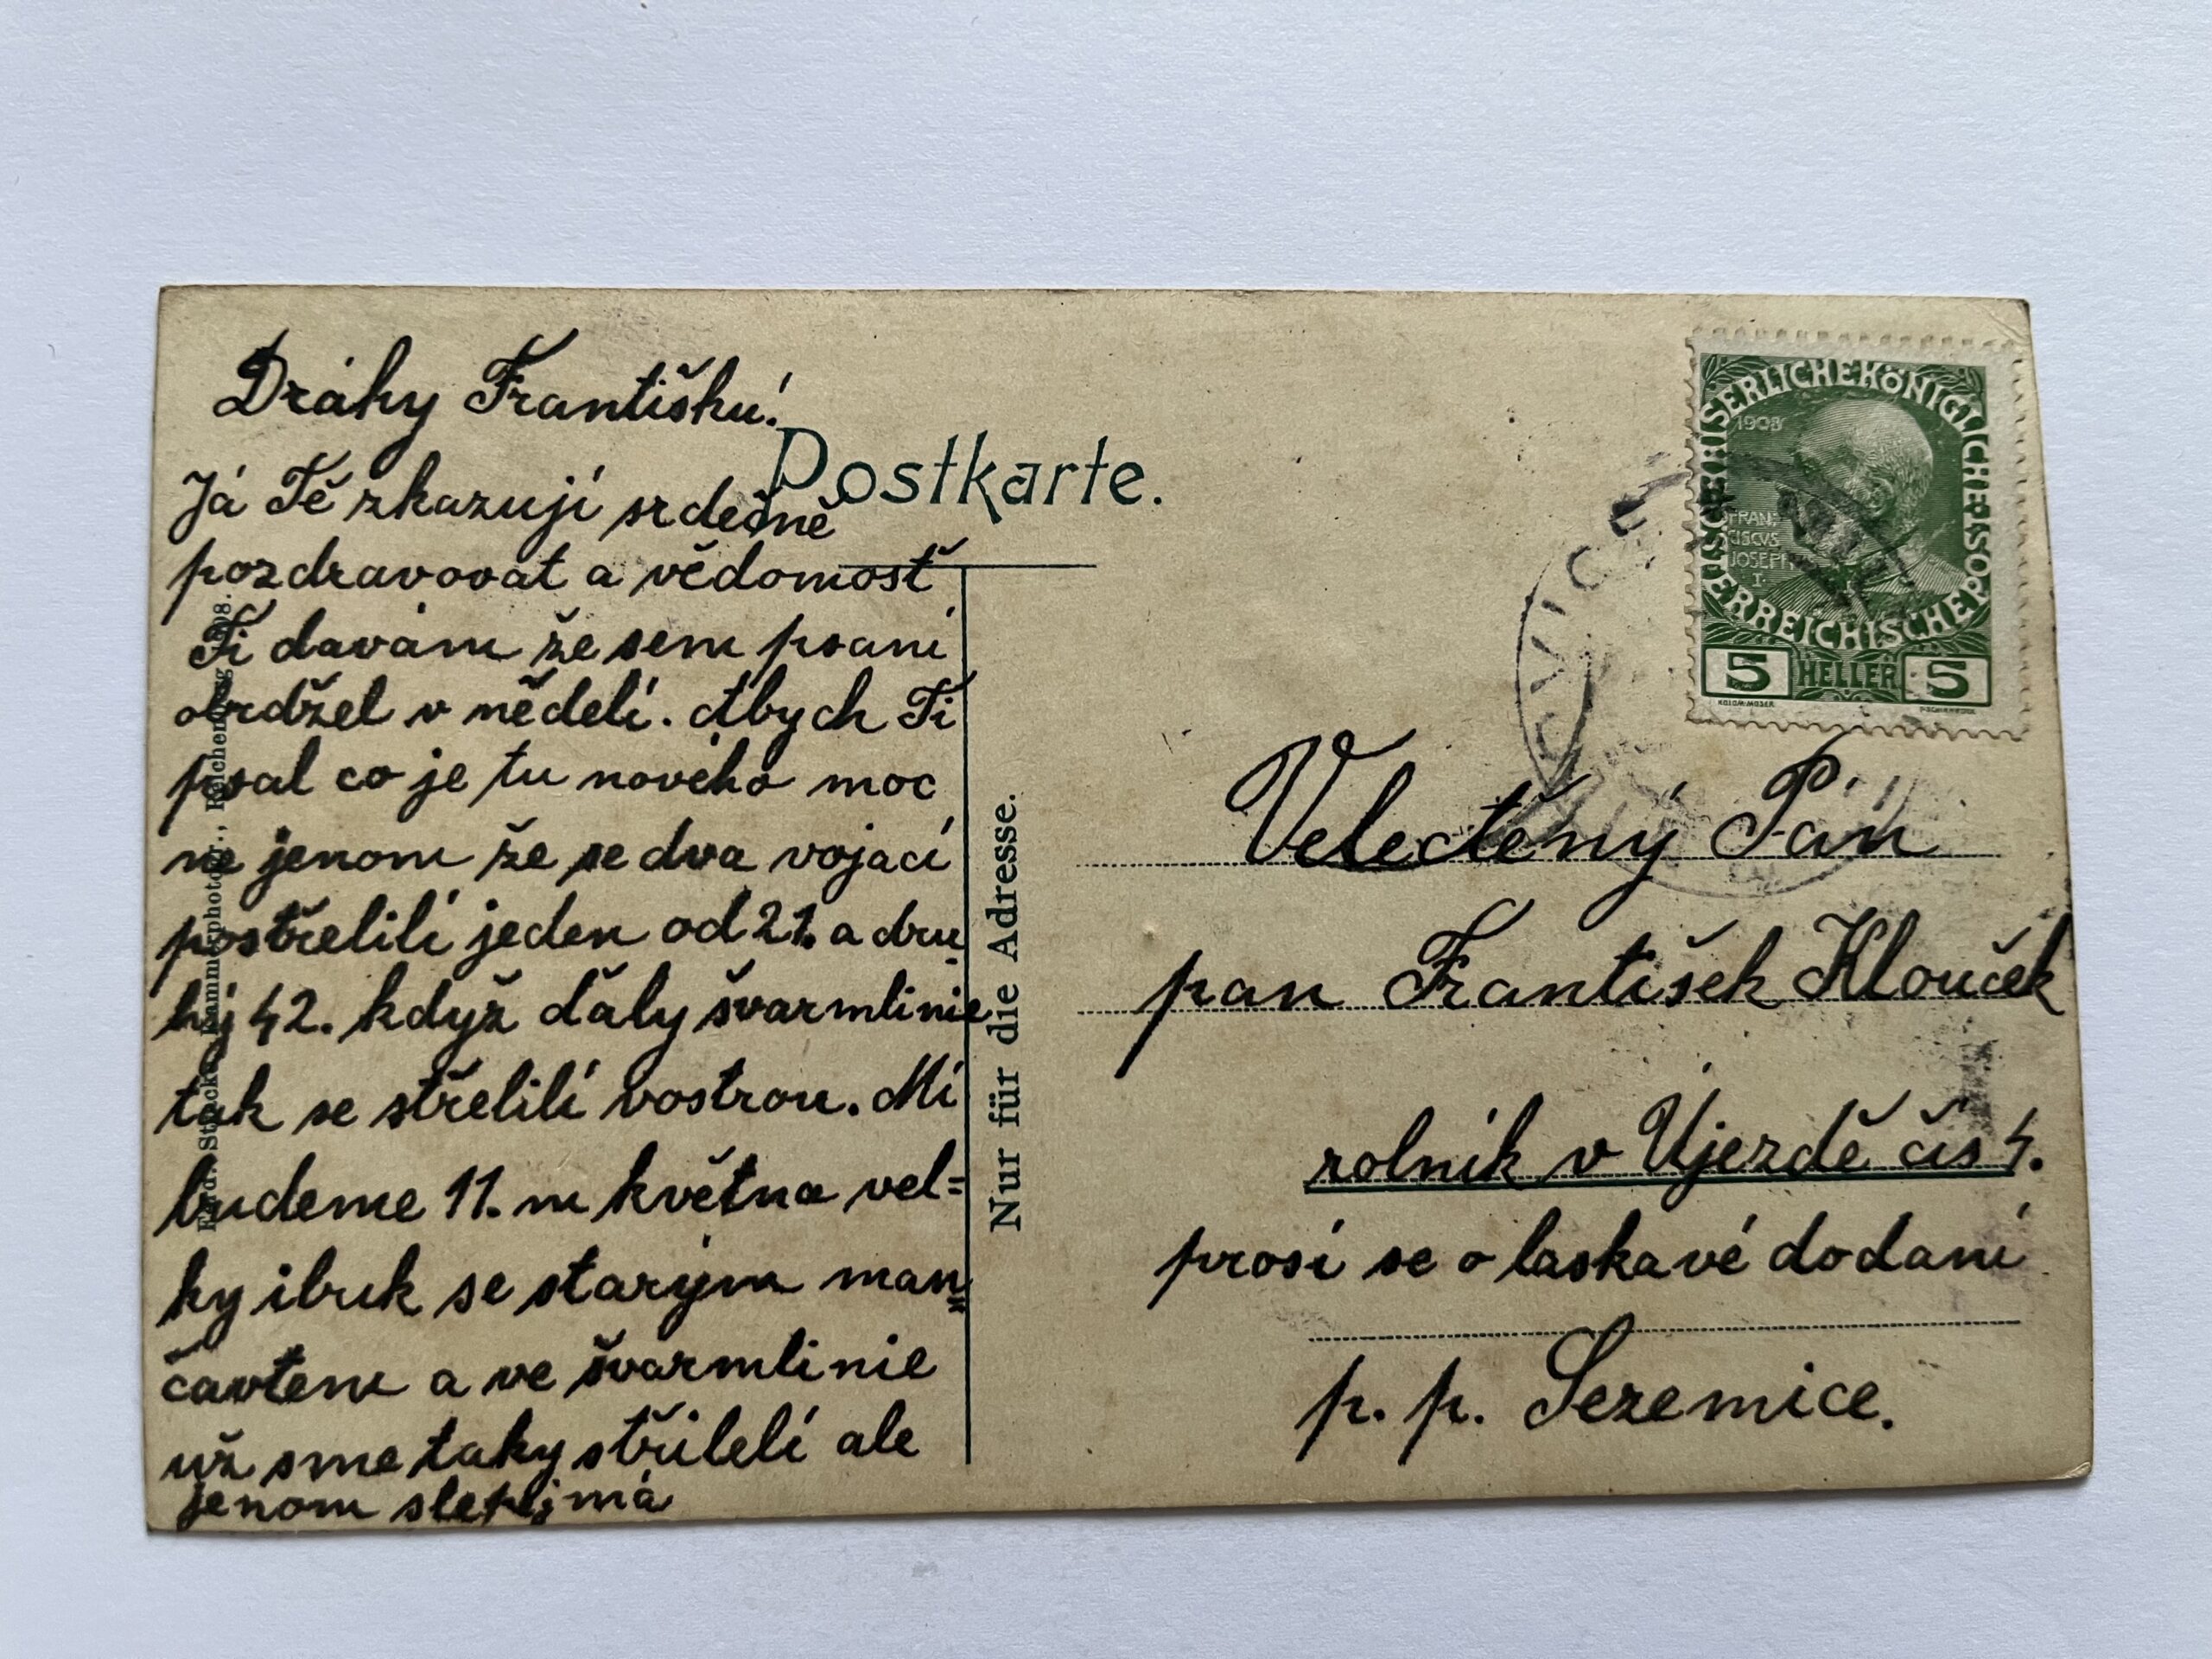 Dráhy Františku!
Já Tě zkazují srdečně
pozdravovat a vědomosť
Ti davám že sem psaní
obrdžel v nědelí. Abych Ti
psal co je tu nového moc
ne jenom že se dva vojací
postřelilí jeden od 21. a dru-
hý 42. když dály švarmlinie
tak se střelilí vostrou. Mi
budeme 11. m května vel=
ky ibuk se starým man=
čavtem a ve švarmlinie
už sme taky střílelí ale
jenom slepýmá
Postkarte.
Nur für die Adresse.
KAISERLICHE KÖNIGLICHE ÖSTERREICHISCHE POST
1908
FRAN;
CISCVS
JOSEPH
I.
5 HELLER 5
KOLOM.MOSER
OVICE
Velectěný Pán
pan František Klouček
rolník v Ujezdě čís 4.
prosí se o laskavé dodaní
p. p. Sezemice.